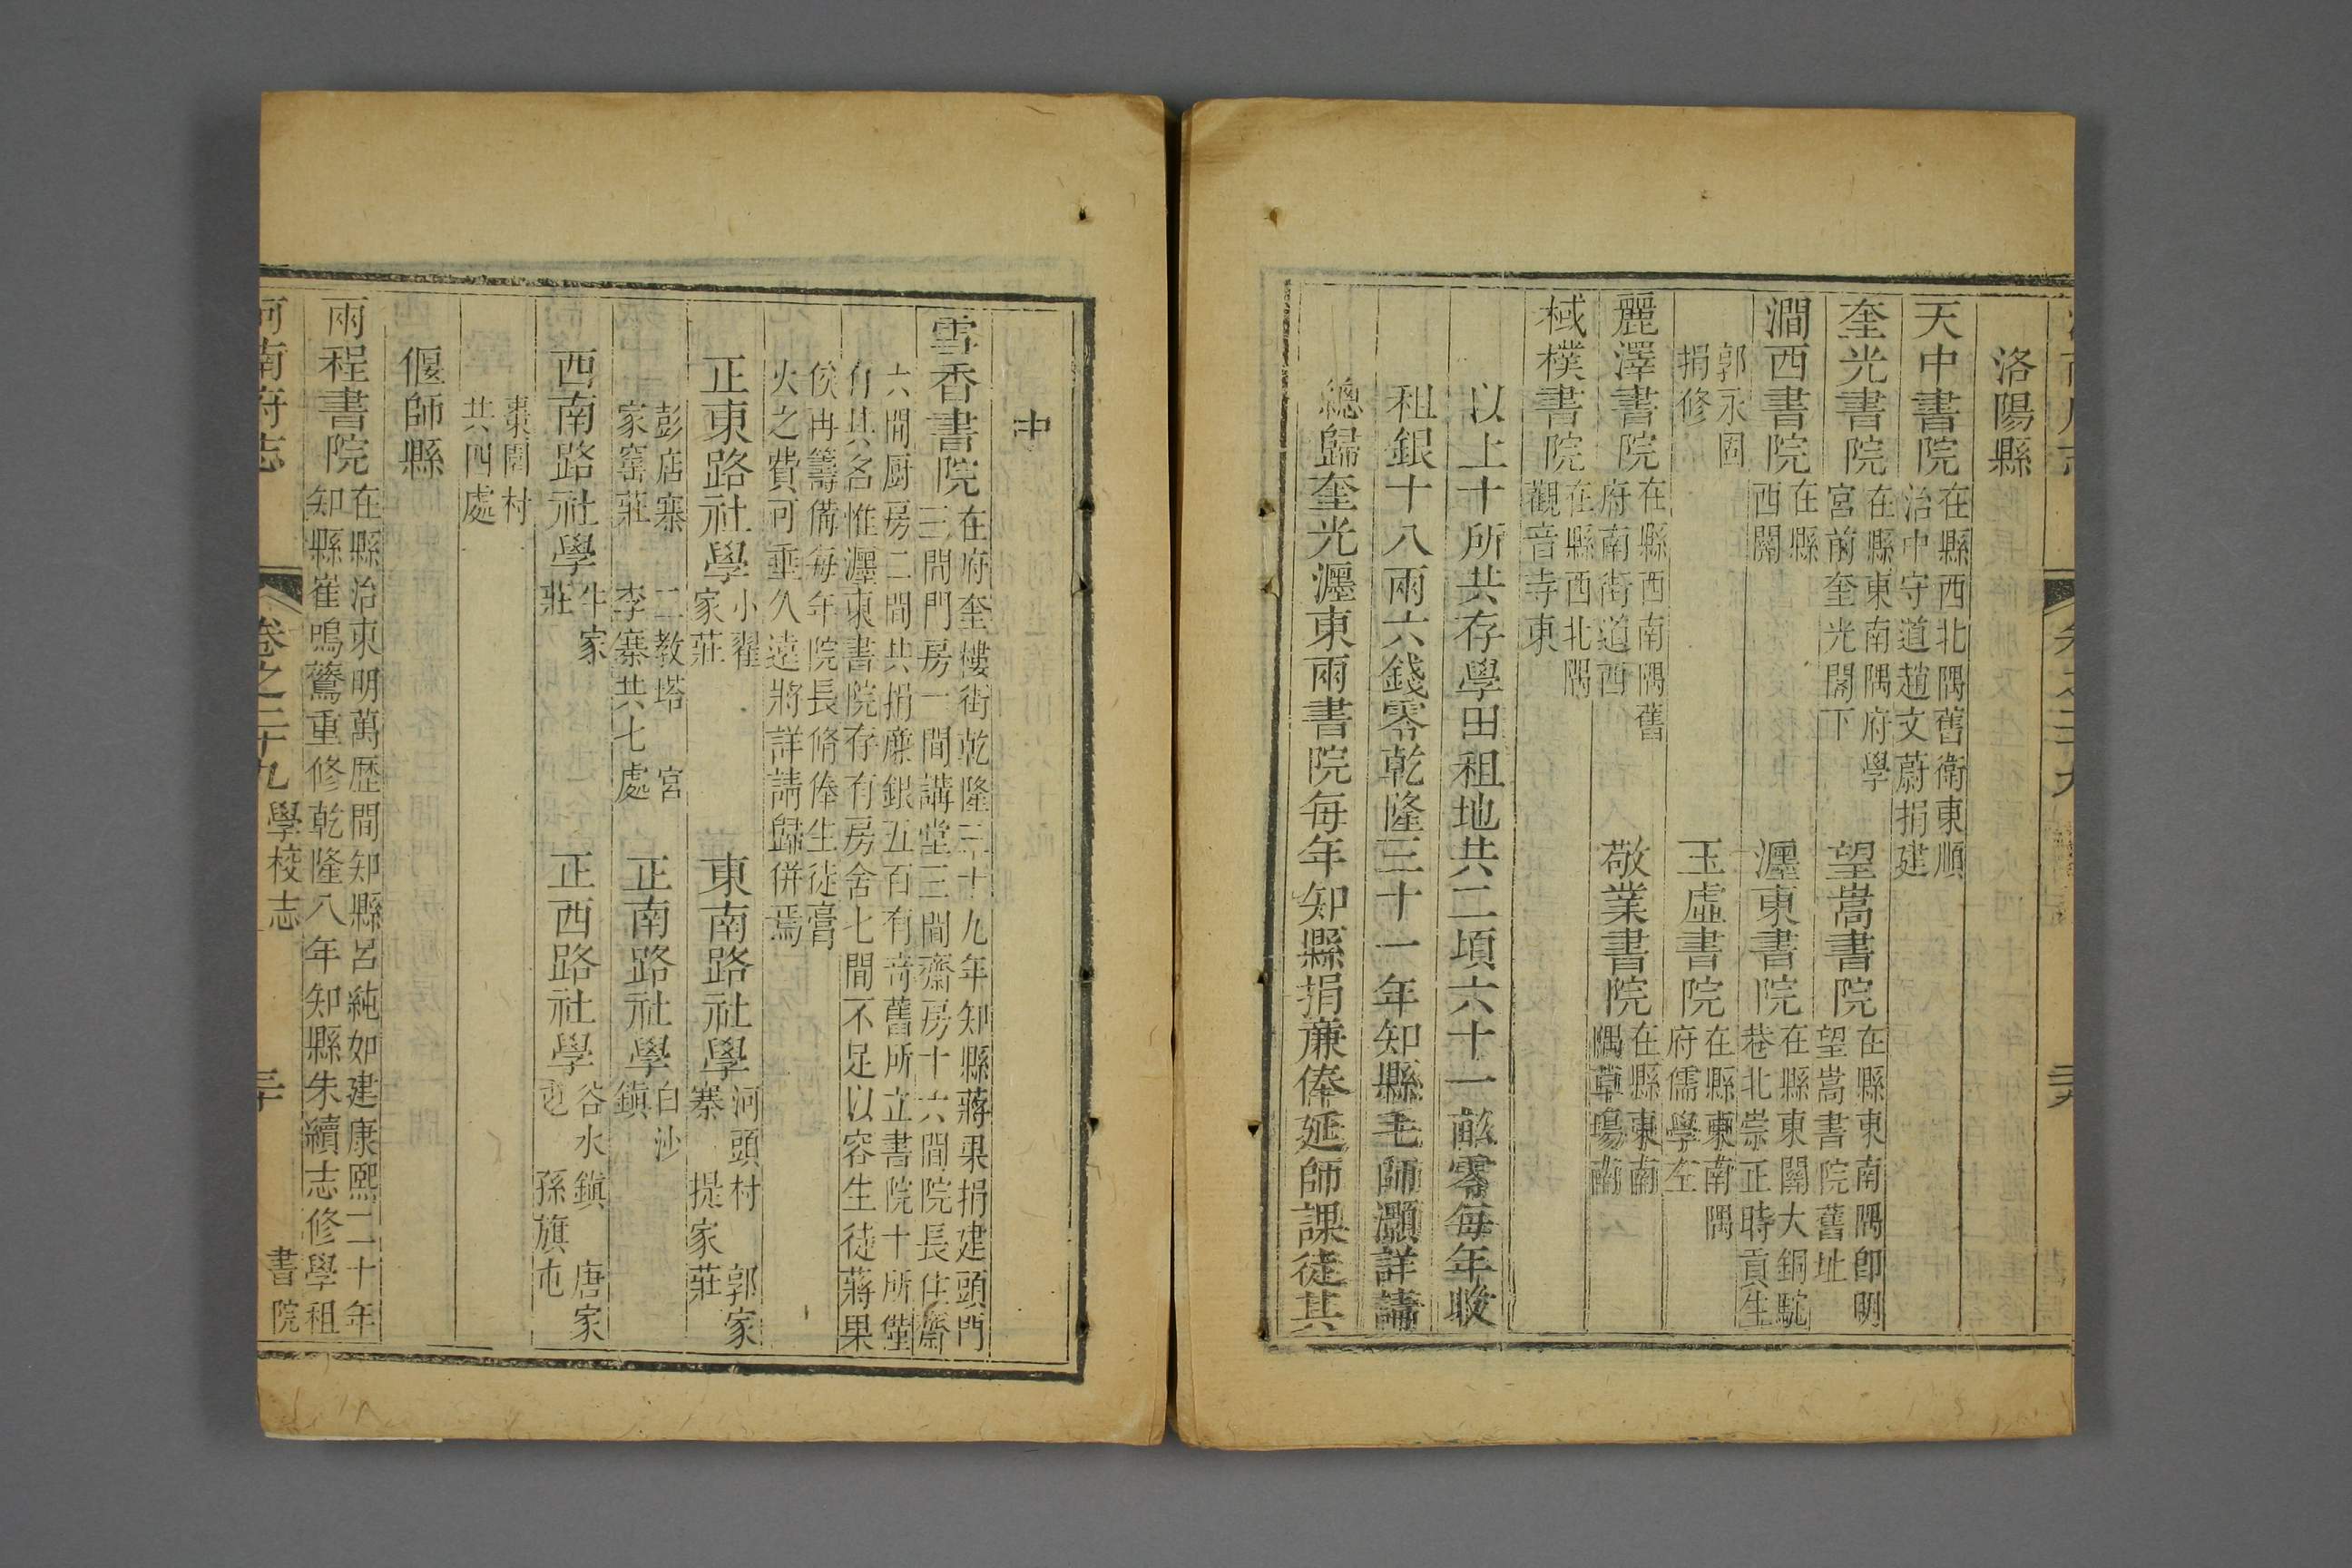 洛陽縣
天中書院在縣西北隅舊衛東順
治中守道趙文蔚捐建
奎光書院在縣東南隅府學
宮前奎光閣下
望嵩書院在縣東南隅卽明
望嵩書院舊址
澗西書院在縣
西關
瀍東書院在縣東關大銅駝
巷北崇正時貢生
郭永固
捐修
玉虛書院在縣東南隅
府儒學左
麗澤書院在縣西南隅舊
府南街道西
敬業書院在縣東南
隅草場南
棫樸書院在縣西北隅
觀音寺東
以上十所共存學田租地共二頃六十一畝零每年收
租銀十八兩六錢零乾隆三十一年知縣毛師灝詳請
總歸奎光瀍東兩書院每年知縣捐亷俸延師課徒其
中
雲香書院在府奎樓街乾隆三十九年知縣蔣果捐建頭門
三間門房一間講堂三間齋房十六間院長住齋
六間厨房二間共捐亷銀五百有竒舊所立書院十所僅
有其名惟瀍東書院存有房舍七間不足以容生徒蔣果
俟冉籌備每年院長脩俸生徒膏
火之費可垂久遠將詳請歸併焉
正東路社學小翟
家莊
東南路社學河頭村 郭家
寨 提家莊
彭店寨 二教塔 宮
家窑莊 李寨共七處
正南路社學白沙
鎮
西南路社學牛家
莊
正西路社學谷水鎮 唐家
屯 孫旗屯
棗園村
共四處
偃師縣
兩程書院在縣治東明萬歷間知縣呂純如建康熙二十年
知縣崔鳴鷟重修乾隆八年知縣朱續志修學租
河南府志 卷之二十九 學校志 書院 三十